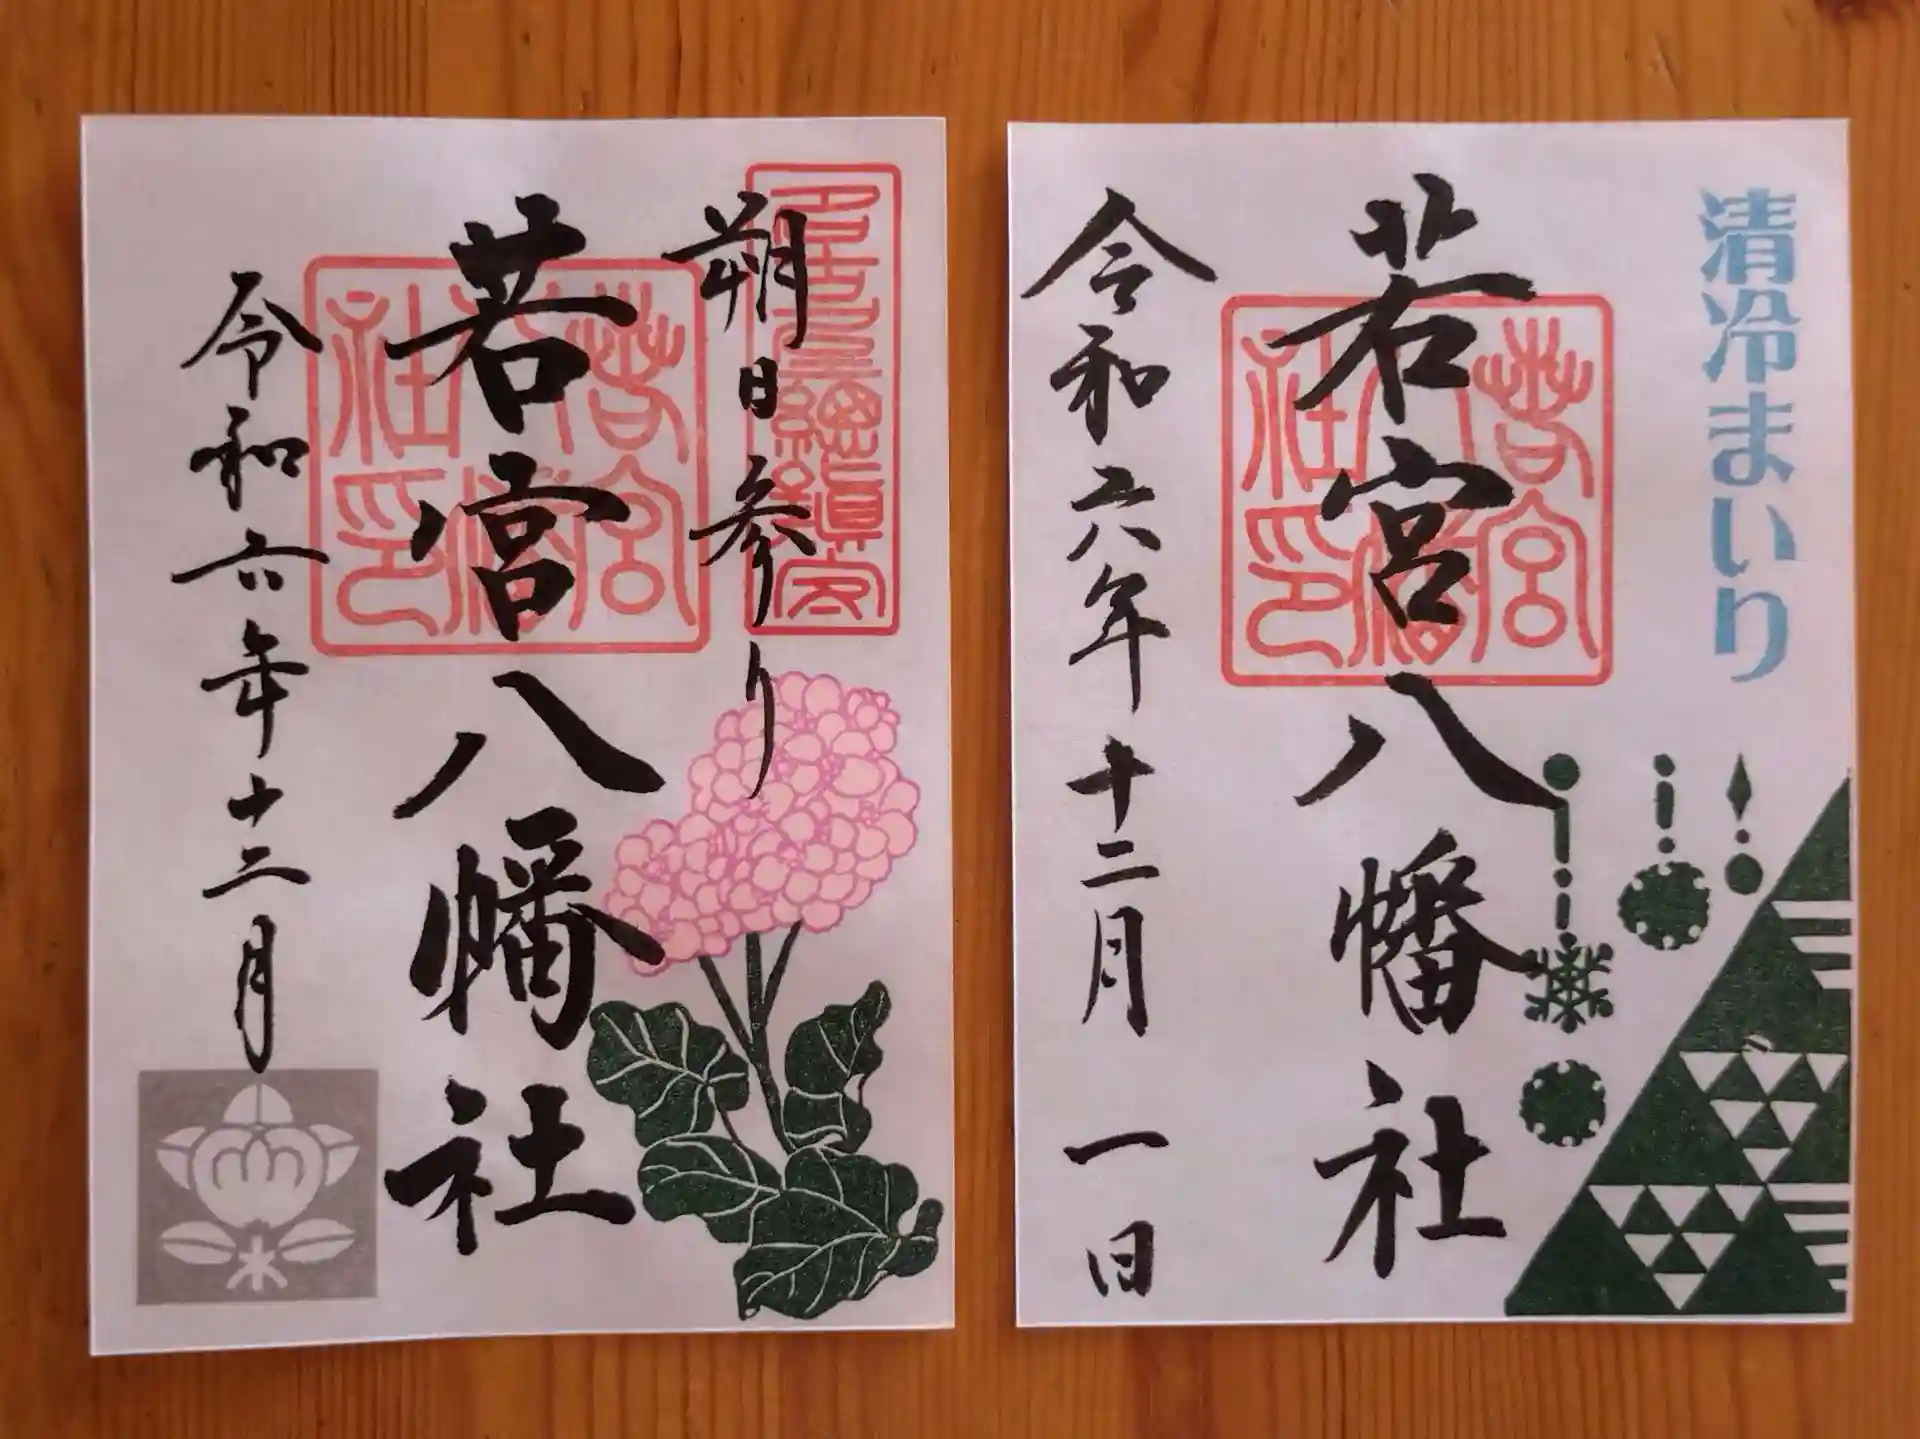 朔日参り
若宮八幡社
令和六年十二月
名古屋總鎮守
若宮八幡社印
清冷まいり
若宮八幡社
令和六年十二月一日
若宮八幡社印